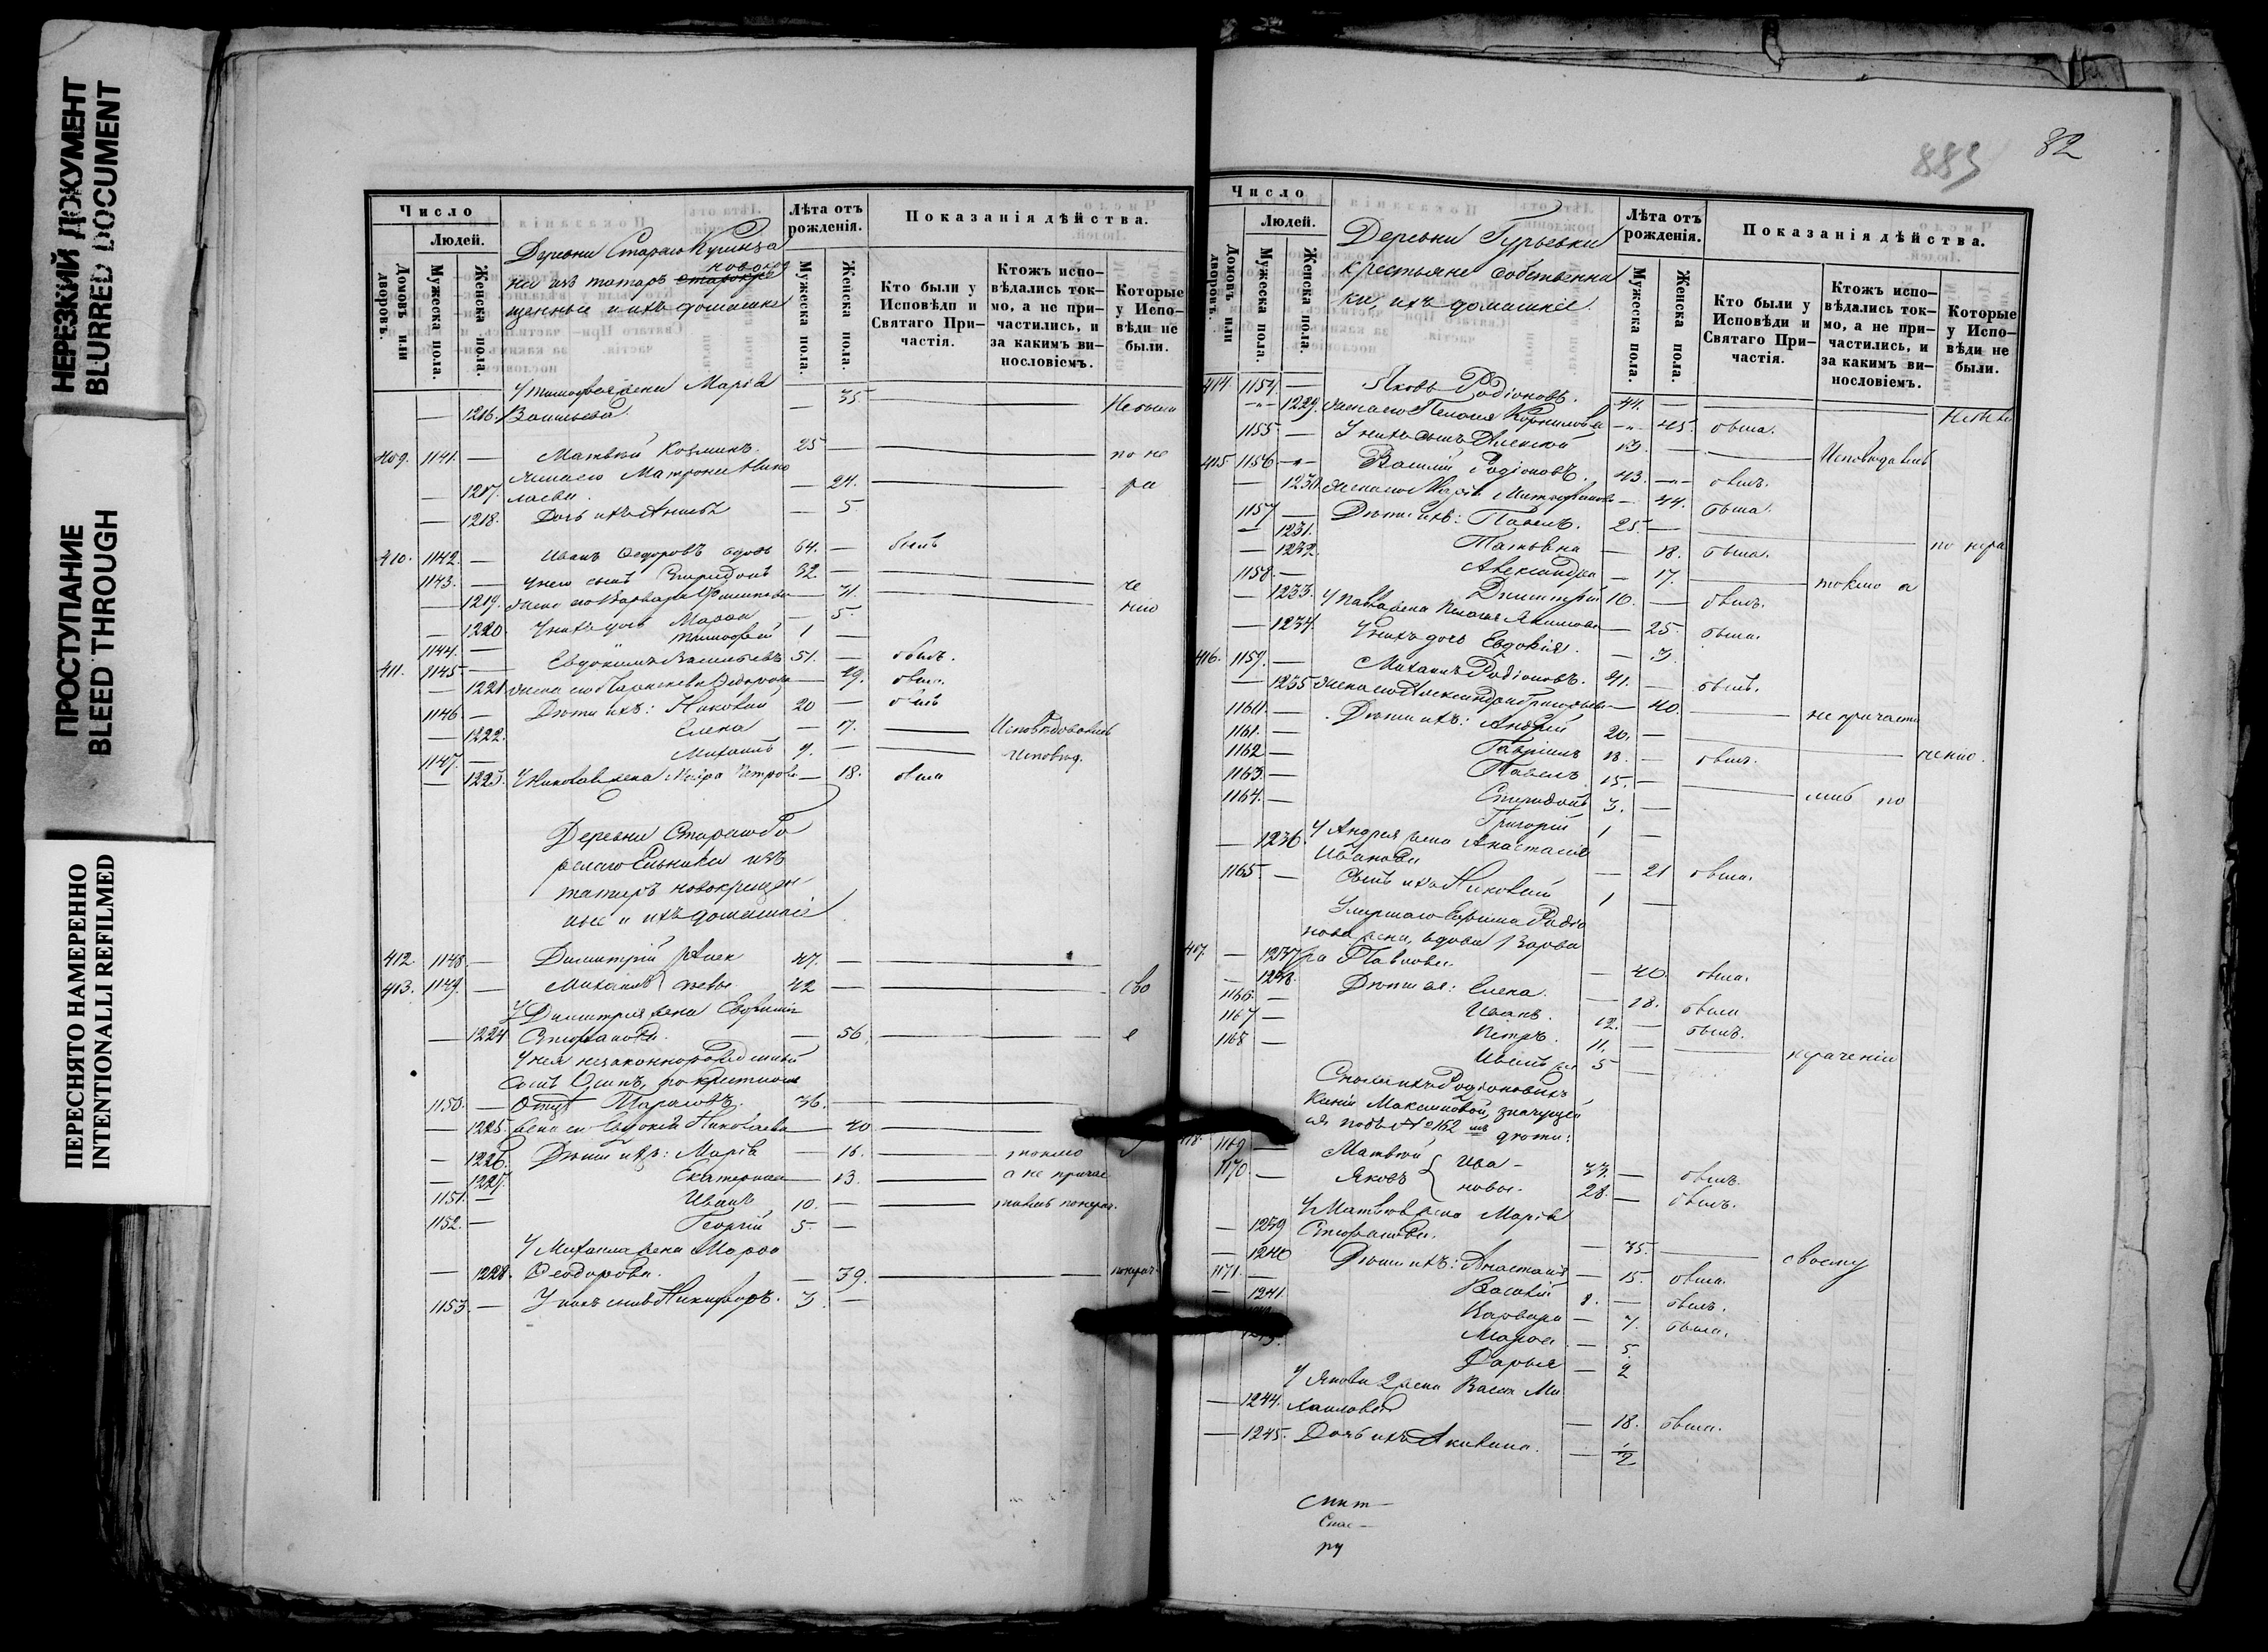 НЕРЕЗКИЙ ДОКУМЕНТ
BLURRED DOCUMENT
ПРОСТУПАНИЕ
BLEED THROUGH
ПЕРЕСНЯТО НАМЕРЕННО
INTENTIONALLI REFILMED
Число
Людей.
Домовъ или дворовъ.
Мужеска пола.
Женска пола.
Деревни Стараго
на изъ татаръ новокре
щенные и ихъ домашніе
Лѣта отъ рожденія.
Мужеска пола.
Женска пола.
Показанія дѣйства.
Кто были у Исповѣди и Святаго При-частія.
Ктожъ испо-вѣдались ток-мо, а не при-частились, и за какимъ ви-нословіемъ.
Которые у Испо-вѣди не были.
У Тимофея жена Марія
— 1216. Васильева — 35 Небыли
409. 1141. — Матвей Козминъ. 25 — по не
жена его Матрона Нико
— 1217. лаева. — 24. ра
— 1218. Дочь ихъ — 5
410. 1142. — Иванъ Федоровъ вдовъ 64. — былъ
1143. — У него сынъ Спиридонъ 32 — че
— 1219. жена его Варвара — 31. нію
— 1220. У нихъ дочь Марѳа — 5.
1144. — Тимофей 1 —
411. 1145 — Евдокимъ Васильевъ 51. — былъ.
— 1221 жена его Федорова — 49. была.
1146. — Дѣти ихъ: Николай 20 — былъ
— 1222. Елена — 17. Исповѣдовались
1147. — Михаилъ 9. — исповѣд.
— 1223. У Николая жена Петрова — 18. была
Деревни Стараго
Ельника изъ
татаръ новокрещен
ные и ихъ домашніе
412. 1148 — Димитрій Алек 47. —
413. 1149. — Михаилъ сѣевы 42 — сво
У Димитрія жена Евфимія
— 1224 Стефанова. — 56. е
У нея незаконнорожденный
сынъ Осипъ, по крестному
1150. — отцу Тарасовъ. 36. —
— 1225. жена его Евдокія Николаева — 40
— 1226. Дѣти ихъ: Марія — 16. токмо
— 1227. Екатерина — 13. а не причас
1151. — Иванъ 10. — тились понерад.
1152. — Георгій 5 —
У Михаила жена Марѳа
— 1228. Ѳеодорова. — 39.
1153. — У нихъ сынъ Никифоръ. 3. —
883
82
Число
Людей.
Домовъ или дворовъ.
Мужеска пола.
Женска пола.
Деревни Гурьевки
крестьяне собственни
ки, ихъ домашніе.
Лѣта отъ рожденія.
Мужеска пола.
Женска пола.
Показанія дѣйства.
Кто были у Исповѣди и Святаго При-частія.
Ктожъ испо-вѣдались ток-мо, а не при-частились, и за какимъ ви-нословіемъ.
Которые у Испо-вѣди не были.
414. 1154. — Яковъ Родіоновъ. 44. —
1229. жена его Пелагія Корнилова 45. была.
1155 — У нихъ сынъ Алексей 13. — Исповѣдались
415 1156 Василій Родіоновъ. 43. былъ.
— 1230 жена его Марія Митрофанова — 44. была.
1157 — Дѣти ихъ: Павелъ. 25 — по нера
— 1231. Татьяна — 18. была.
— 1232. Александра — 17. токмо а
1158. — Димитрій 10. — былъ.
— 1233. У Павла жена Пелагія Якимова — 25. была.
— 1234. У нихъ дочь Евдокія. — 3.
416. 1159. — Михаилъ Родіоновъ. 41. — былъ.
— 1235 жена его Александра Григорьева — 40. не причасти
1160. — Дѣти ихъ: Андрей 20. —
1161. — Гавріилъ 18. — былъ. ченію.
1162 — Павелъ 15. — лись по
1163. — Спиридонъ 3. —
1164. — Григорій 1 —
У Андрея жена Анастасія
— 1236. Иванова — 21 была.
1165 — Сынъ ихъ Николай 1 —
Умершаго Ефима Родіо
нова жена, вдова Варва
417. — 1237 ра Павлова. — 40. была.
— 1238. Дѣти ея: Елена. — 18. была
1166. — Иванъ. 12. — былъ.
1167 — Петръ. 11. — нерадѣнію
1168 — 5 —
Сноха ихъ Родіоновыхъ
Ксенія Максимовой, значущей
ся подъ № 1152 дѣти:
418. 1169 — Матвей Ива- 33. — былъ.
1170. — Яковъ новы. 28. — былъ.
У Матвея жена Марія
— 1239 Стефанова. — 35. своему
— 1240 Дѣти ихъ: Анастасія — 15. была.
1171. — Василій 8. — былъ.
— 1241 Варвара — 7. была.
Марѳа — 5.
Дарья — 2
У Якова 2 жена Васса Ми
— 1244. хаилова — 18. была.
— 1245. Дочь ихъ Акилина. — 1/2